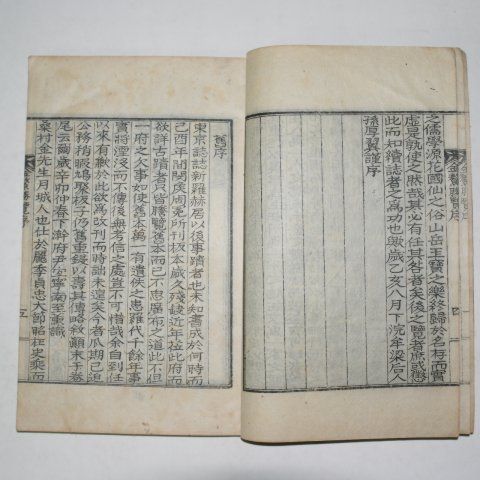 之儒學源花國仙之俗山岳玉寶之樂終歸於名存而實
虛是孰使之然哉其必有任其咎者矣後之覽者庶或懲
此而知續誌者之爲功也歟歲乙亥八月下浣牟梁后人
孫厚翼謹序
舊序
東京誌誌新羅赫居以後事蹟者也未知書成於何時而
己酉年間閔侯周冕所刊板本歲久殘缺近年莅此府而
欲詳古蹟者只皆謄覽舊本而已不思廣布之道此不但
一府之欠事如使舊本萬一有遺佚之患羅代千餘年事
實將湮沒而不傳後無者信之處豈不可惜哉余自到任
以來有歉於此欲爲改刊而時詘未遑矣今者瓜期已迫
公務稍暇鳩聚板子仍舊重錄以壽其傳略敘顚末于卷
尾云爾歲辛卯仲春下澣府尹安寧南至熏識
桑村金先生月城人也仕於麗季貞忠大節昭在史乘而